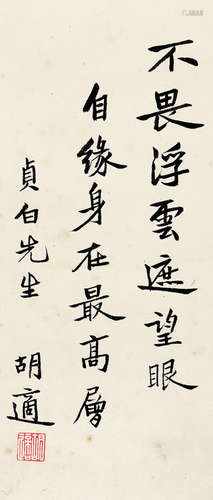 不畏浮雲遮望眼
自緣身在最高層
貞白先生
胡適